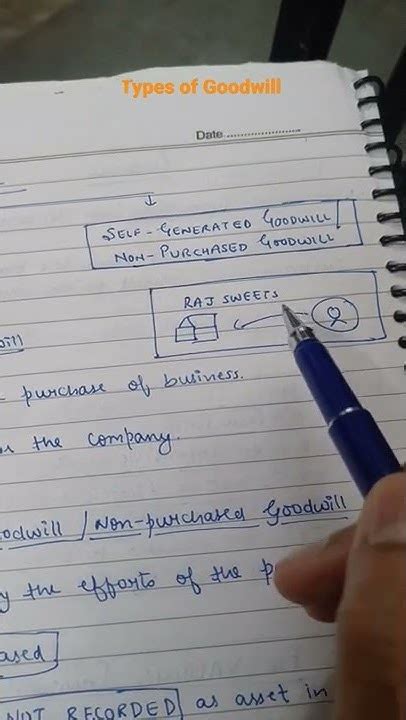 Types of Goodwill
Date
SELF-GENERATED GOODWILL/
NON-PURCHASED GOODWILL
RAJ SWEETS
purchase of business.
the company.
/Non-purchased Goodwill
the efforts of the
NOT RECORDED as asset in